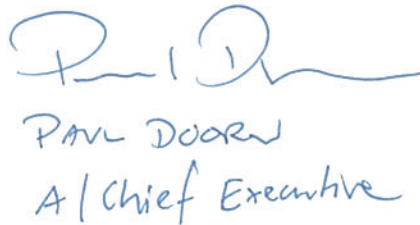 Paul D
PAUL DOORN
A/Chief Executive